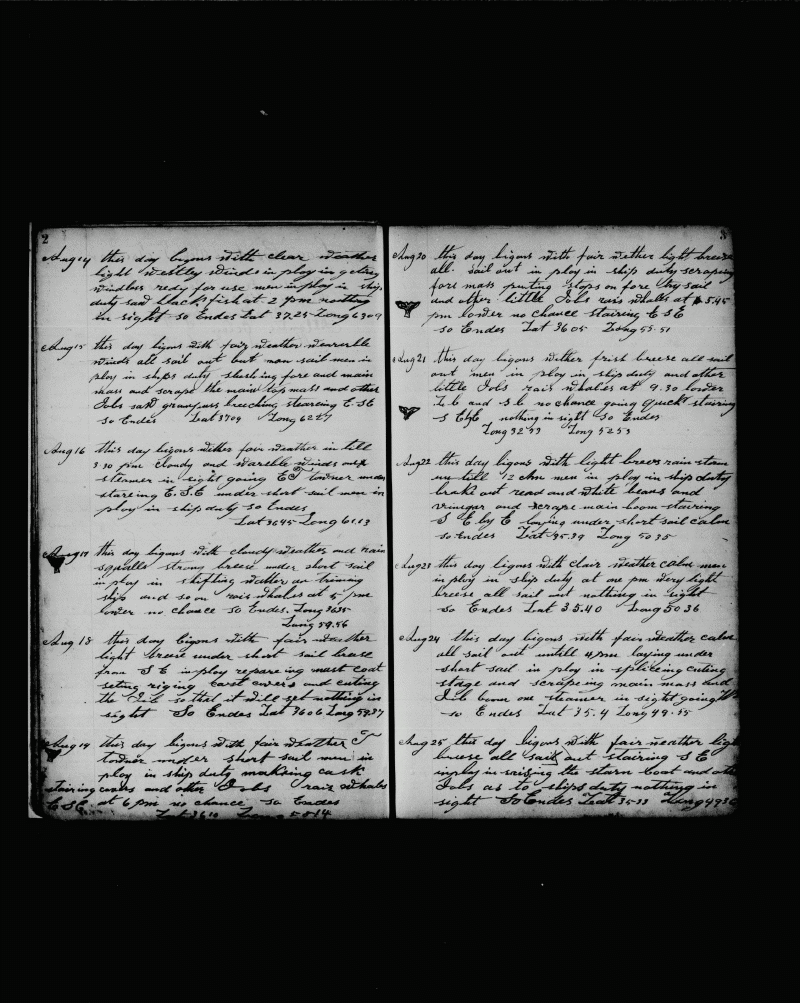 2
Aug 14 this day bigons with clear weather
light westley winds in ploy in geting
windlas redy for use men in ploy in ship
duty saw black fish at 2 pm nothing
in sight so Endes Lat 37.25 Long 63 09
Aug 15 this day bigons with fair weather wearible
winds all sail out but men sail men in
ploy in ships duty slushing fore and main
mass and scrape the main top mass and other
Jobs saw grampurs breeching stearing E S E
so Endes Lat 3709 Long 6227
Aug 16 this day bigons wither fair weather in till
3 30 p m cloudy and warible winds
steamer in sight going E towner under
stareing E.S.E under short sail men in
ploy in ship duty so Endes
Lat 3645 Long 61.13
Aug 17 this day bigons with cloudy weather and rain
squalls strong breese under short sail
in ploy in shifting wather an triming
ship and so on rais whales at 5 pm
lower no chance so Endes. Long 3635
Long 59.56
Aug 18 this day bigons with fair weather
light breese under short sail breese
from S E in ploy repareing mast coat
seting riging cast covers and cuting
the Jib so that it will set nothing in
sight So Endes Lat 3606 Long 59.37
Aug 19 this day bigons with fair weather
towner under short sail men in
ploy in ship duty makking cask
stairing covers and other Jobs rais whales
E S E. at 6 pm no chance so Endes
Lat 3610 Long 5814
3
Aug 20 this day bigons with fair wether light breese
all sail out in ploy in ship duty scraping
fore mass penting stops on fore sky sail
and other little Jobs rais whales at 5.45
pm lower no chance stairing E S E
so Endes Lat 3605 Long 55.51
Aug 21 this day bigons wither frish breese all sail
out men in ploy in ship duty and other
little Jobs rais whales at 9.30 lower
L B and S b no chance going quick stairing
S E by E nothing in sight So Endes
Long 3253 Long 5253
Aug 22 this day bigons with light brees rain storm
un till 12 Am men in ploy in ship duty
brake out read and white beans and
vinegar and scrape main boom stairing
S E by E laying under short sail calm
so Endes Lat 35.39 Long 50 35
Aug 23 this day bigons with clair weather calm men
in ploy in ship duty at one pm very light
breese all sail out nothing in sight
So Endes Lat 35.40 Long 50 36
Aug 24 this day bigons with fair weather calm
all sail out untill 4 pm laying under
short sail in ploy in spliceing cuting
stage and scrapeing main mass and
Jib boom one steamer in sight going W
so Endes Lat 35.4 Long 49.55
Aug 25 this day bigons with fair weather ligh
breese all sail out stairing S E
in ploy in raising the starn boat and oth
Jobs as to ships duty nothing in
sight So Endes Lat 35 33 Long 4936